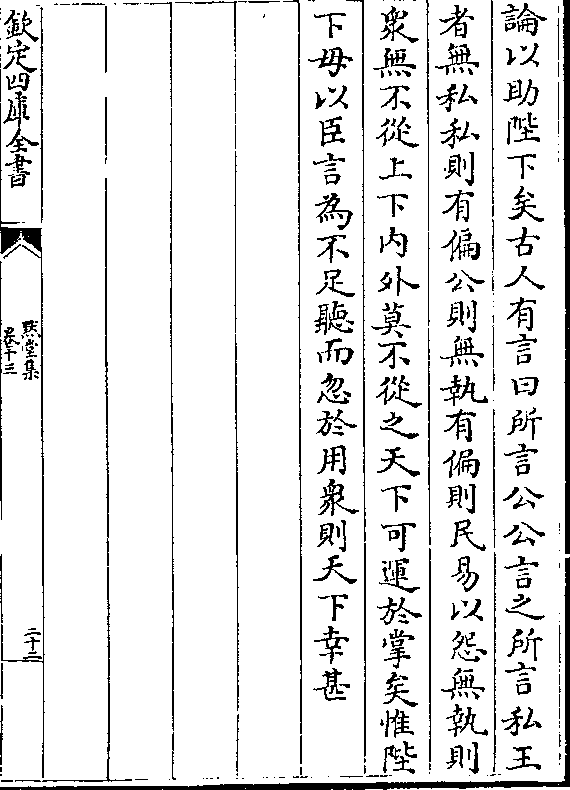 論以助陛下矣古人有言曰所言公公言之所言私王
者無私私則有偏公則無執有偏則民易以怨無執則
衆無不從上下内外莫不從之天下可運於掌矣惟陛
下毋以臣言為不足聽而忽於用衆則天下幸甚
欽定四庫全書
默堂集
卷十三
二十二